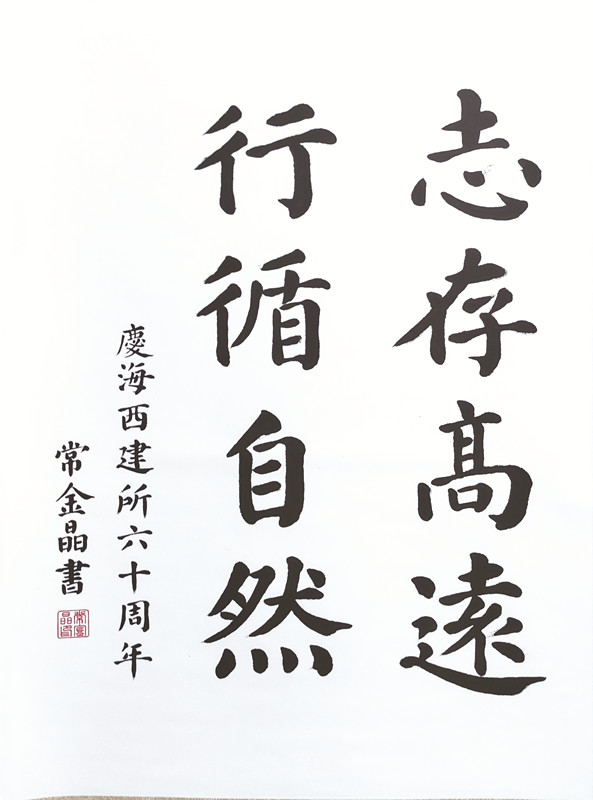 志存高遠
行循自然
慶海西建所六十周年
常金晶書